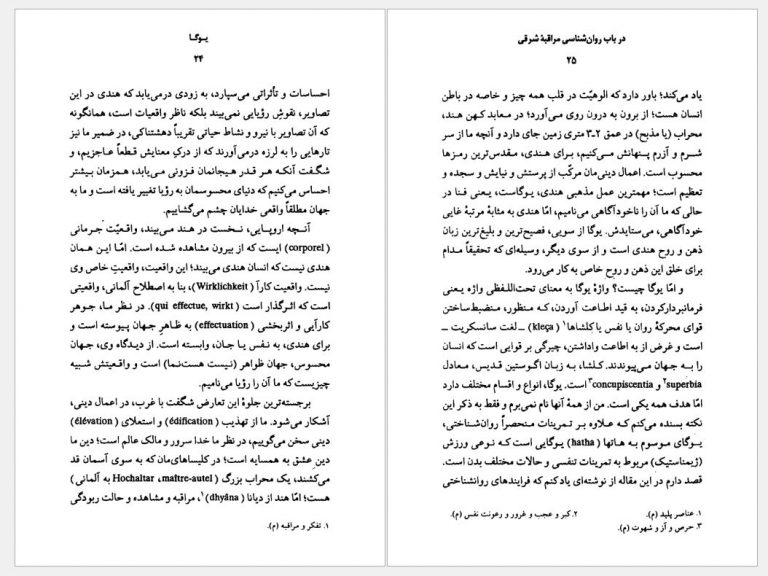 یـوگـا
۲۴
احساسات و تأثراتی می‌سپارد، به زودی درمی‌یابد که هندی در این
تصاویر، نقوشِ رؤیایی نمی‌بیند بلکه ناظر واقعیات است، همانگونه
که آن تصاویر با نیرو و نشاط حیاتی تقریباً دهشتناکی، در ضمیر ما نیز
تارهایی را به لرزه درمی‌آورند که از درکِ معنایش قطعاً عاجزیم، و
شگفت آنکه هر قدر هیجانمان فزونی می‌یابد، همزمان بیشتر
احساس می‌کنیم که دنیای محسوسمان به رؤیا تغییر یافته است و ما به
جهان مطلقاً واقعی خدایان چشم می‌گشاییم.
آنچه اروپایی، نخست در هند می‌بیند، واقعیّت جرمانی
(corporel) ایست که از بیرون مشاهده شده است. امّا این همان
هندی نیست که انسان هندی می‌بیند؛ این واقعیت، واقعیتِ خاص وی
نیست. واقعیت کارآ (Wirklichkeit)، بنا به اصطلاح آلمانی، واقعیتی
است که اثرگذار است (qui effectue, wirkt). در نظر ما، جوهر
کارآیی و اثربخشی (effectuation) به ظاهرِ جهان پیوسته است و
برای هندی، به نفس یا جان، وابسته است. از دیدگاه وی، جهان
محسوس، جهان ظواهر (نیست هست‌نما) است و واقعیتش شبیه
چیزیست که ما آن را رؤیا می‌نامیم.
برجسته‌ترین جلوهٔ این تعارض شگفت با غرب، در اعمال دینی،
آشکار می‌شود. ما از تهذیب (édification) و استعلای (élévation)
دینی سخن می‌گوییم، در نظر ما خدا سرور و مالک عالم است؛ دین ما
دینِ عشق به همسایه است؛ در کلیساهای‌مان که به سوی آسمان قد
می‌کشند، یک محراب بزرگ (Hochaltar ,maître-autel به آلمانی)
هست؛ امّا هند از دیانا (dhyâna)۱، مراقبه و مشاهده و حالت ربودگی
۱. تفکر و مراقبه (م).
در باب روان‌شناسی مراقبهٔ شرقی
۲۵
یاد می‌کند؛ باور دارد که الوهیّت در قلب همه چیز و خاصه در باطن
انسان هست؛ از برون به درون روی می‌آورد؛ در معابد کهن هند،
محراب (یا مذبح) در عمق ۲ـ۳ متری زمین جای دارد و آنچه ما از سر
شرم و آزرم پنهانش می‌کنیم، برای هندی، مقدس‌ترین رمزها
محسوب است. اعمال دینی‌مان مرکّب از پرستش و نیایش و سجده و
تعظیم است؛ مهمترین عمل مذهبی هندی، یوگاست، یعنی فنا در
حالی که ما آن را ناخودآگاهی می‌نامیم، امّا هندی به مثابهٔ مرتبهٔ غایی
خودآگاهی، می‌ستایدش. یوگا از سویی، فصیح‌ترین و بلیغ‌ترین زبان
ذهن و روح هندی است و از سوی دیگر، وسیله‌ای که تحقیقاً مدام
برای خلق این ذهن و روحِ خاص به کار می‌رود.
و امّا یوگا چیست؟ واژهٔ یوگا به معنای تحت‌اللفظی واژه یعنی
فرمانبردارکردن، به قید اطاعت آوردن، که منظور، منضبط‌ساختن
قوای محرکهٔ روان یا نفس یا کلشاها۱ (kleça) ــ لغت سانسکریت ــ
است و غرض از به اطاعت واداشتن، چیرگی بر قوایی است که انسان
را به جهان می‌پیوندند. کلشا، به زبان اگوستین قدیس، معادل
superbia۲ و concupiscentia۳ است. یوگا، انواع و اقسام مختلف دارد
امّا هدف همه یکی است. من از همهٔ آنها نام نمی‌برم و فقط به ذکر این
نکته بسنده می‌کنم که علاوه بر تمرینات منحصراً روان‌شناختی،
یوگای موسوم به هاتها (hatha) یوگایی است که نوعی ورزش
(ژیمناستیک) مربوط به تمرینات تنفسی و حالات مختلف بدن است.
قصد دارم در این مقاله از نوشته‌ای یادکنم که فرایندهای روانشناختی
۱. عناصر پلید (م). ۲. کبر و عجب و غرور و رعونت نفس (م).
۳. حرص و آز و شهوت (م).